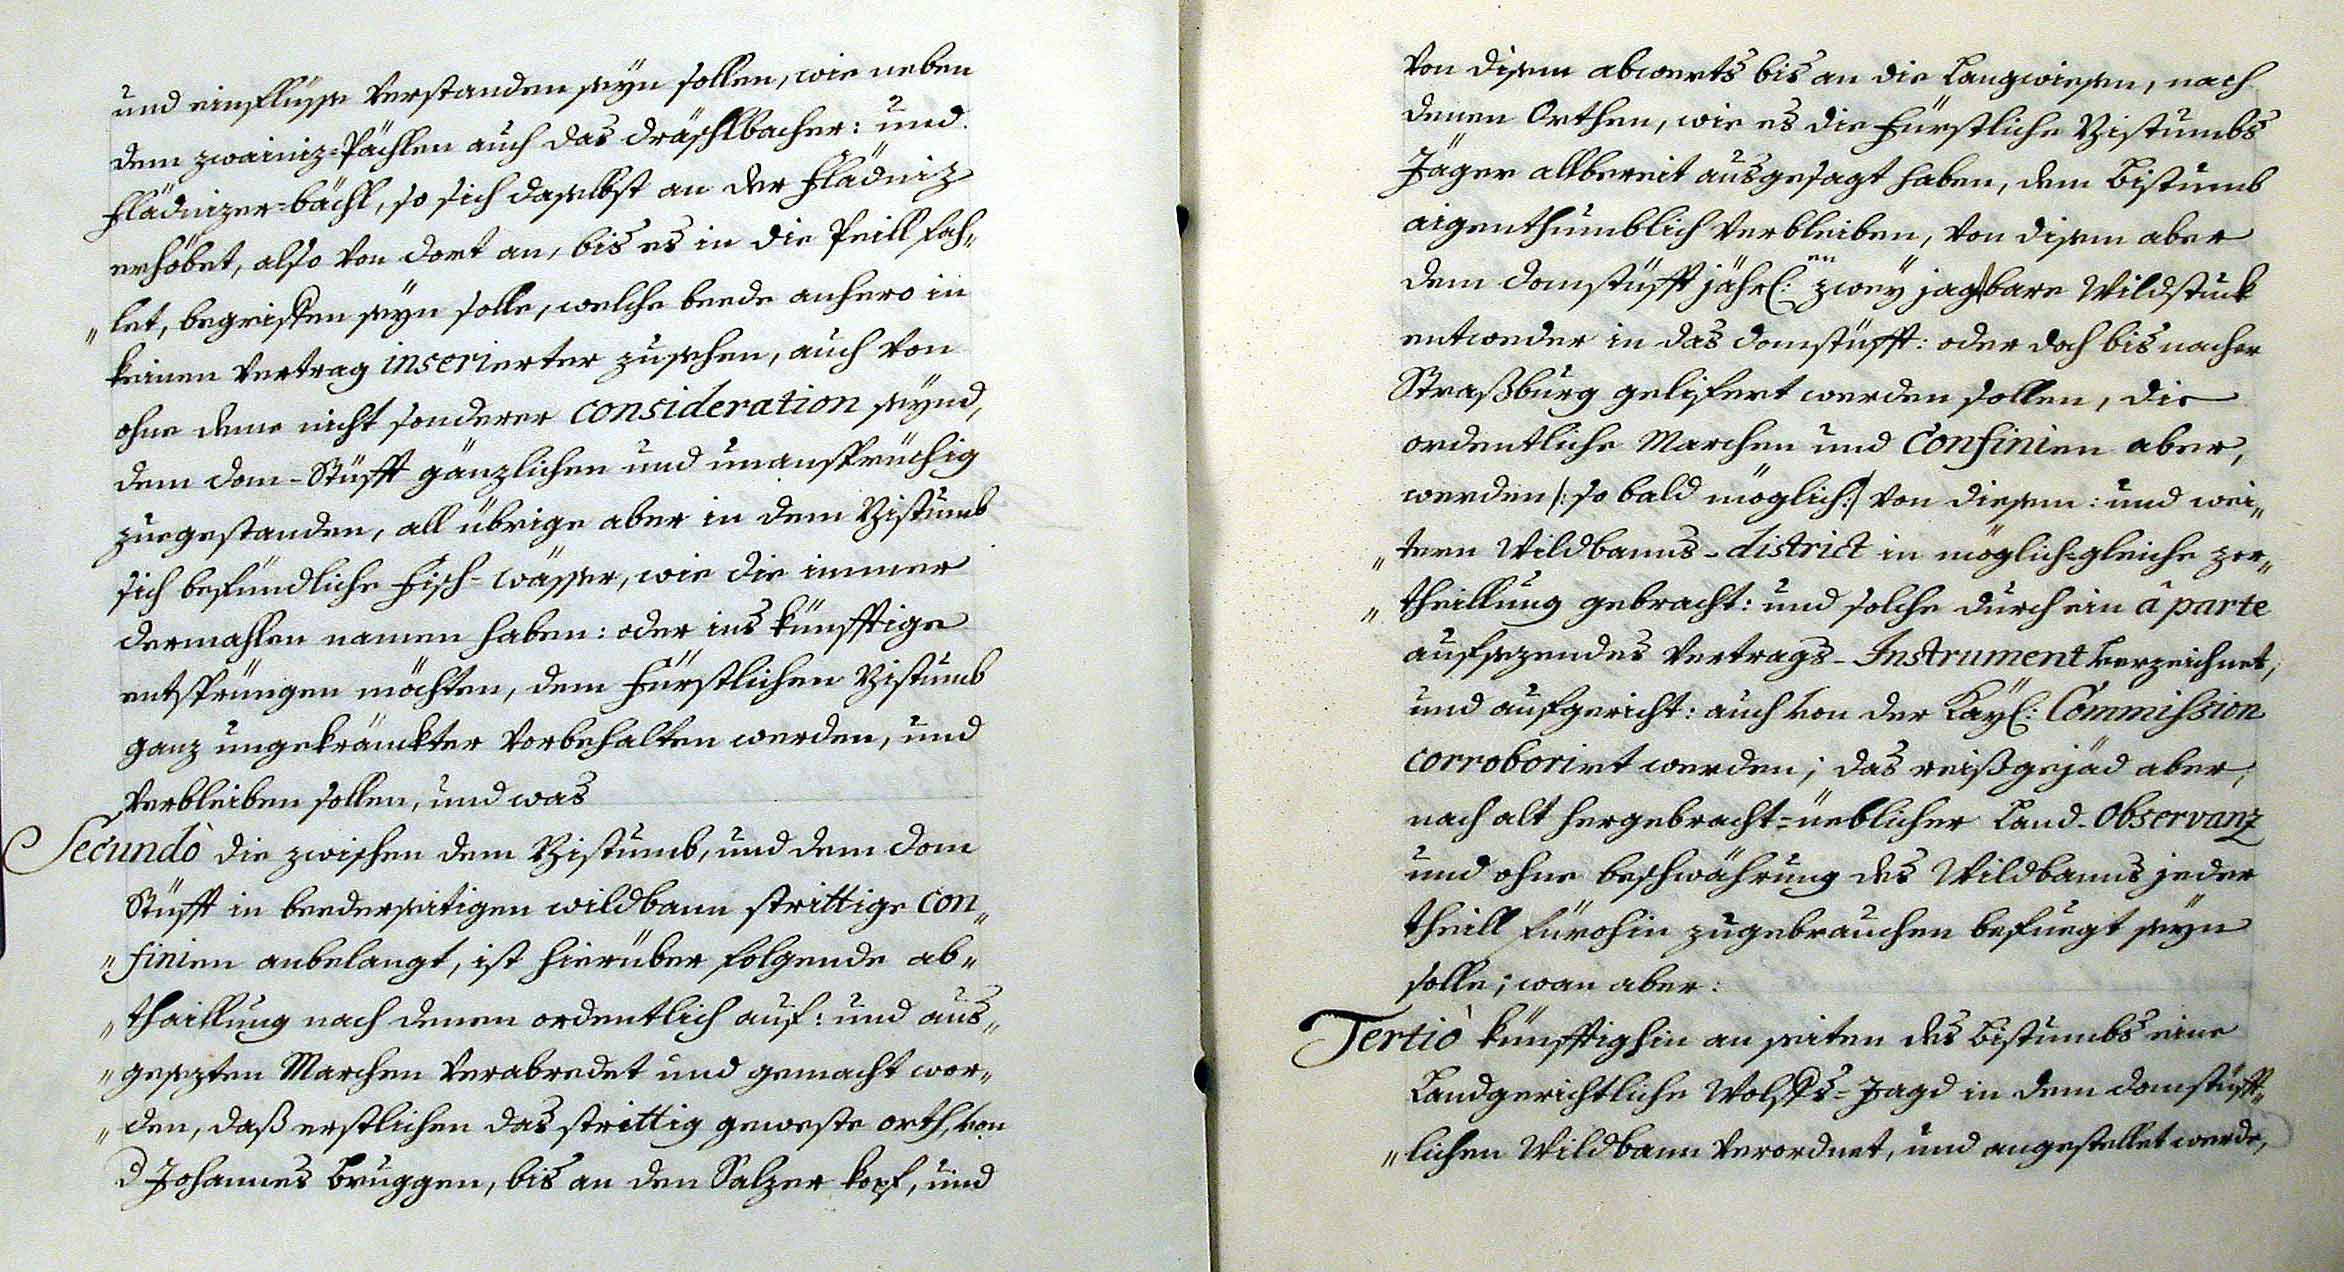 und einflüsse verstanden seyn sollen, wie neben
dem zwainiz=Pächlen auch das dräschlbacher: und
flädnizer=bächl, so sich daselbst an der flädniz
erhöbet, also von dort an, bis es in die Peill fah„
„let, begriffen seyn solle, welche beede anhero in
keinen vertrag inserierter zusehen, auch von
ohne deme nicht sonderer consideration seynd,
dem dom-Stüfft gänzlichen und unansprüchig
zuegestanden, all übrige aber in dem Bistumb
sich befündliche fisch-wässer, wie die immer
dermahlen namen haben: oder ins künfftige
entsprüngen möchten, dem fürstlichen Bistumb
ganz ungekränckter vorbehalten werden, und
verbleiben sollen, und was
Secundò die zwischen dem Bistumb, und dem dom
Stüfft in beederseitigen wildbann strittige con„
„finien anbelangt, ist hierüber folgende ab„
„thaillung nach denen ordentlich auf: und aus„
„gesezten Marchen verabredet und gemacht wor„
„den, daß erstlichen das strittig geweste orth, von
d Johannes bruggen, bis an den Salzer kopf, und
von disem abwerts bis an die Langwiesen, nach
denen Orthen, wie es die fürstliche Bistumbs
Jäger allbereit ausgesagt haben, dem Bistumb
aigenthumblich verbleiben, von disem aber
dem domstüfft jährl: en zwey jagbare Wildstuck
entweder in das domstüfft: oder doch bis nacher
Straßburg gelifert werden sollen, die
ordentliche Marchen und Confinien aber,
werden /: so bald möglich :/ von diesem: und wei„
„tern Wildbanns-district in möglich=gleiche zer„
„theillung gebracht: und solche durch ein â parte
aufsezendes vertrags-Instrument verzeichnet,
und aufgericht: auch von der Kayl: Commission
corroborirt werden; das reißgejäd aber,
nach alt hergebracht=üeblicher Land-Observanz
und ohne beschwährung des Wildbanns jeder
theill fürohin zugebrauchen befuegt seyn
solle; wan aber:
Tertiò künfftighin an seiten des Bistumbs eine
Landgerichtliche Wolffs=Jagd in dem domstüfft„
„lichen Wildbann verordnet, und angestellet werde,